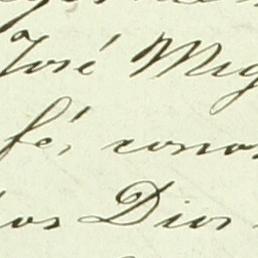 José Mig
fé, cono
os Dios